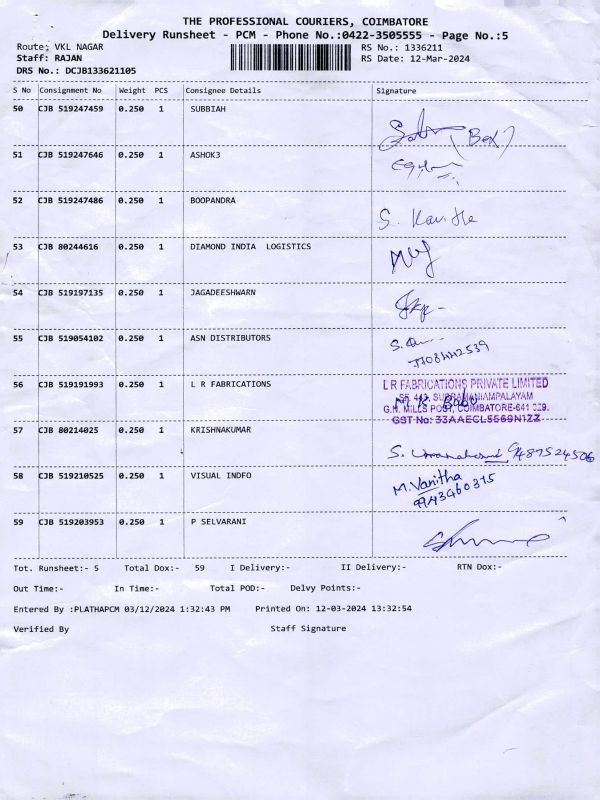 THE PROFESSIONAL COURIERS, COIMBATORE
Delivery Runsheet - PCM - Phone No.:0422-3505555 - Page No.:5
Route: VKL NAGAR RS No.: 1336211
Staff: RAJAN RS Date: 12-Mar-2024
DRS No.: DCJB133621105
S No Consignment No Weight PCS Consignee Details Signature
50 CJB 519247459 0.250 1 SUBBIAH
51 CJB 519247646 0.250 1 ASHOK3
52 CJB 519247486 0.250 1 BOOPANDRA S. Kavitha
53 CJB 80244616 0.250 1 DIAMOND INDIA LOGISTICS
54 CJB 519197135 0.250 1 JAGADEESHWARN
55 CJB 519054102 0.250 1 ASN DISTRIBUTORS
56 CJB 519191993 0.250 1 L R FABRICATIONS L R FABRICATIONS PRIVATE LIMITED
SF. 443, SUBRAMANIAMPALAYAM
G.N. MILLS POST, COIMBATORE-641 029.
GST No: 33AAECL5569N1ZZ
57 CJB 80214025 0.250 1 KRISHNAKUMAR
58 CJB 519210525 0.250 1 VISUAL INDFO M. Vanitha
9943960315
59 CJB 519203953 0.250 1 P SELVARANI
Tot. Runsheet:- 5 Total Dox:- 59 I Delivery:- II Delivery:- RTN Dox:-
Out Time:- In Time:- Total POD:- Delvy Points:-
Entered By :PLATHAPCM 03/12/2024 1:32:43 PM Printed On: 12-03-2024 13:32:54
Verified By Staff Signature